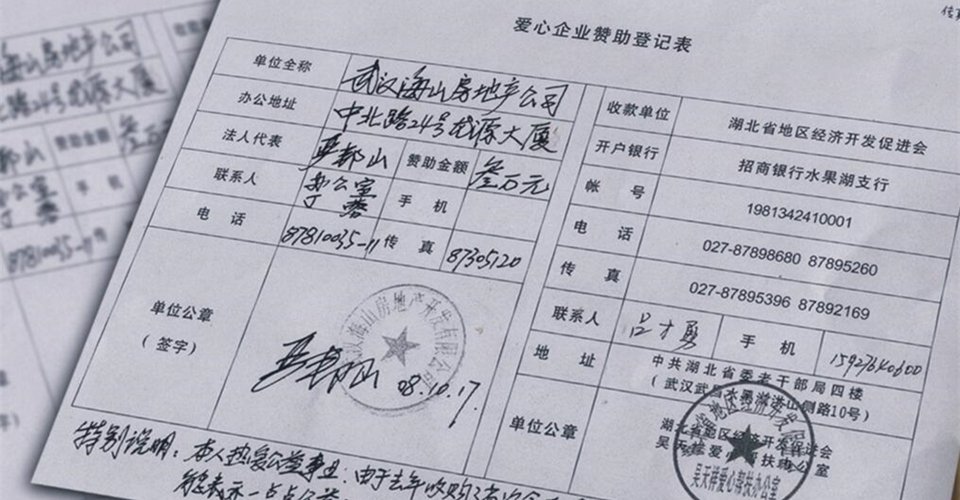 爱心企业赞助登记表
单位全称 武汉海山房地产公司
办公地址 中北路24号龙源大厦
法人代表 山 赞助金额 叁万元
联系人 办公室 丁蓉 手机
电话 87810035-11 传真 87305120
单位公章
(签字)
海山房地产开发有限公司
08.10.17.
收款单位 湖北省地区经济开发促进会
开户银行 招商银行水果湖支行
帐号 1981342410001
电话 027-87898680 87895260
传真 027-87895396 87892169
联系人 吕才 手机 15927640600
地址 中共湖北省委老干部局四楼
(武汉武昌水果湖洪山侧路10号)
单位公章 湖北省地区经济开发促进会
吴天祥爱心帮扶办公室
吴天祥爱心帮扶办公室
特别说明:本人热爱公益事业;由于去年收购